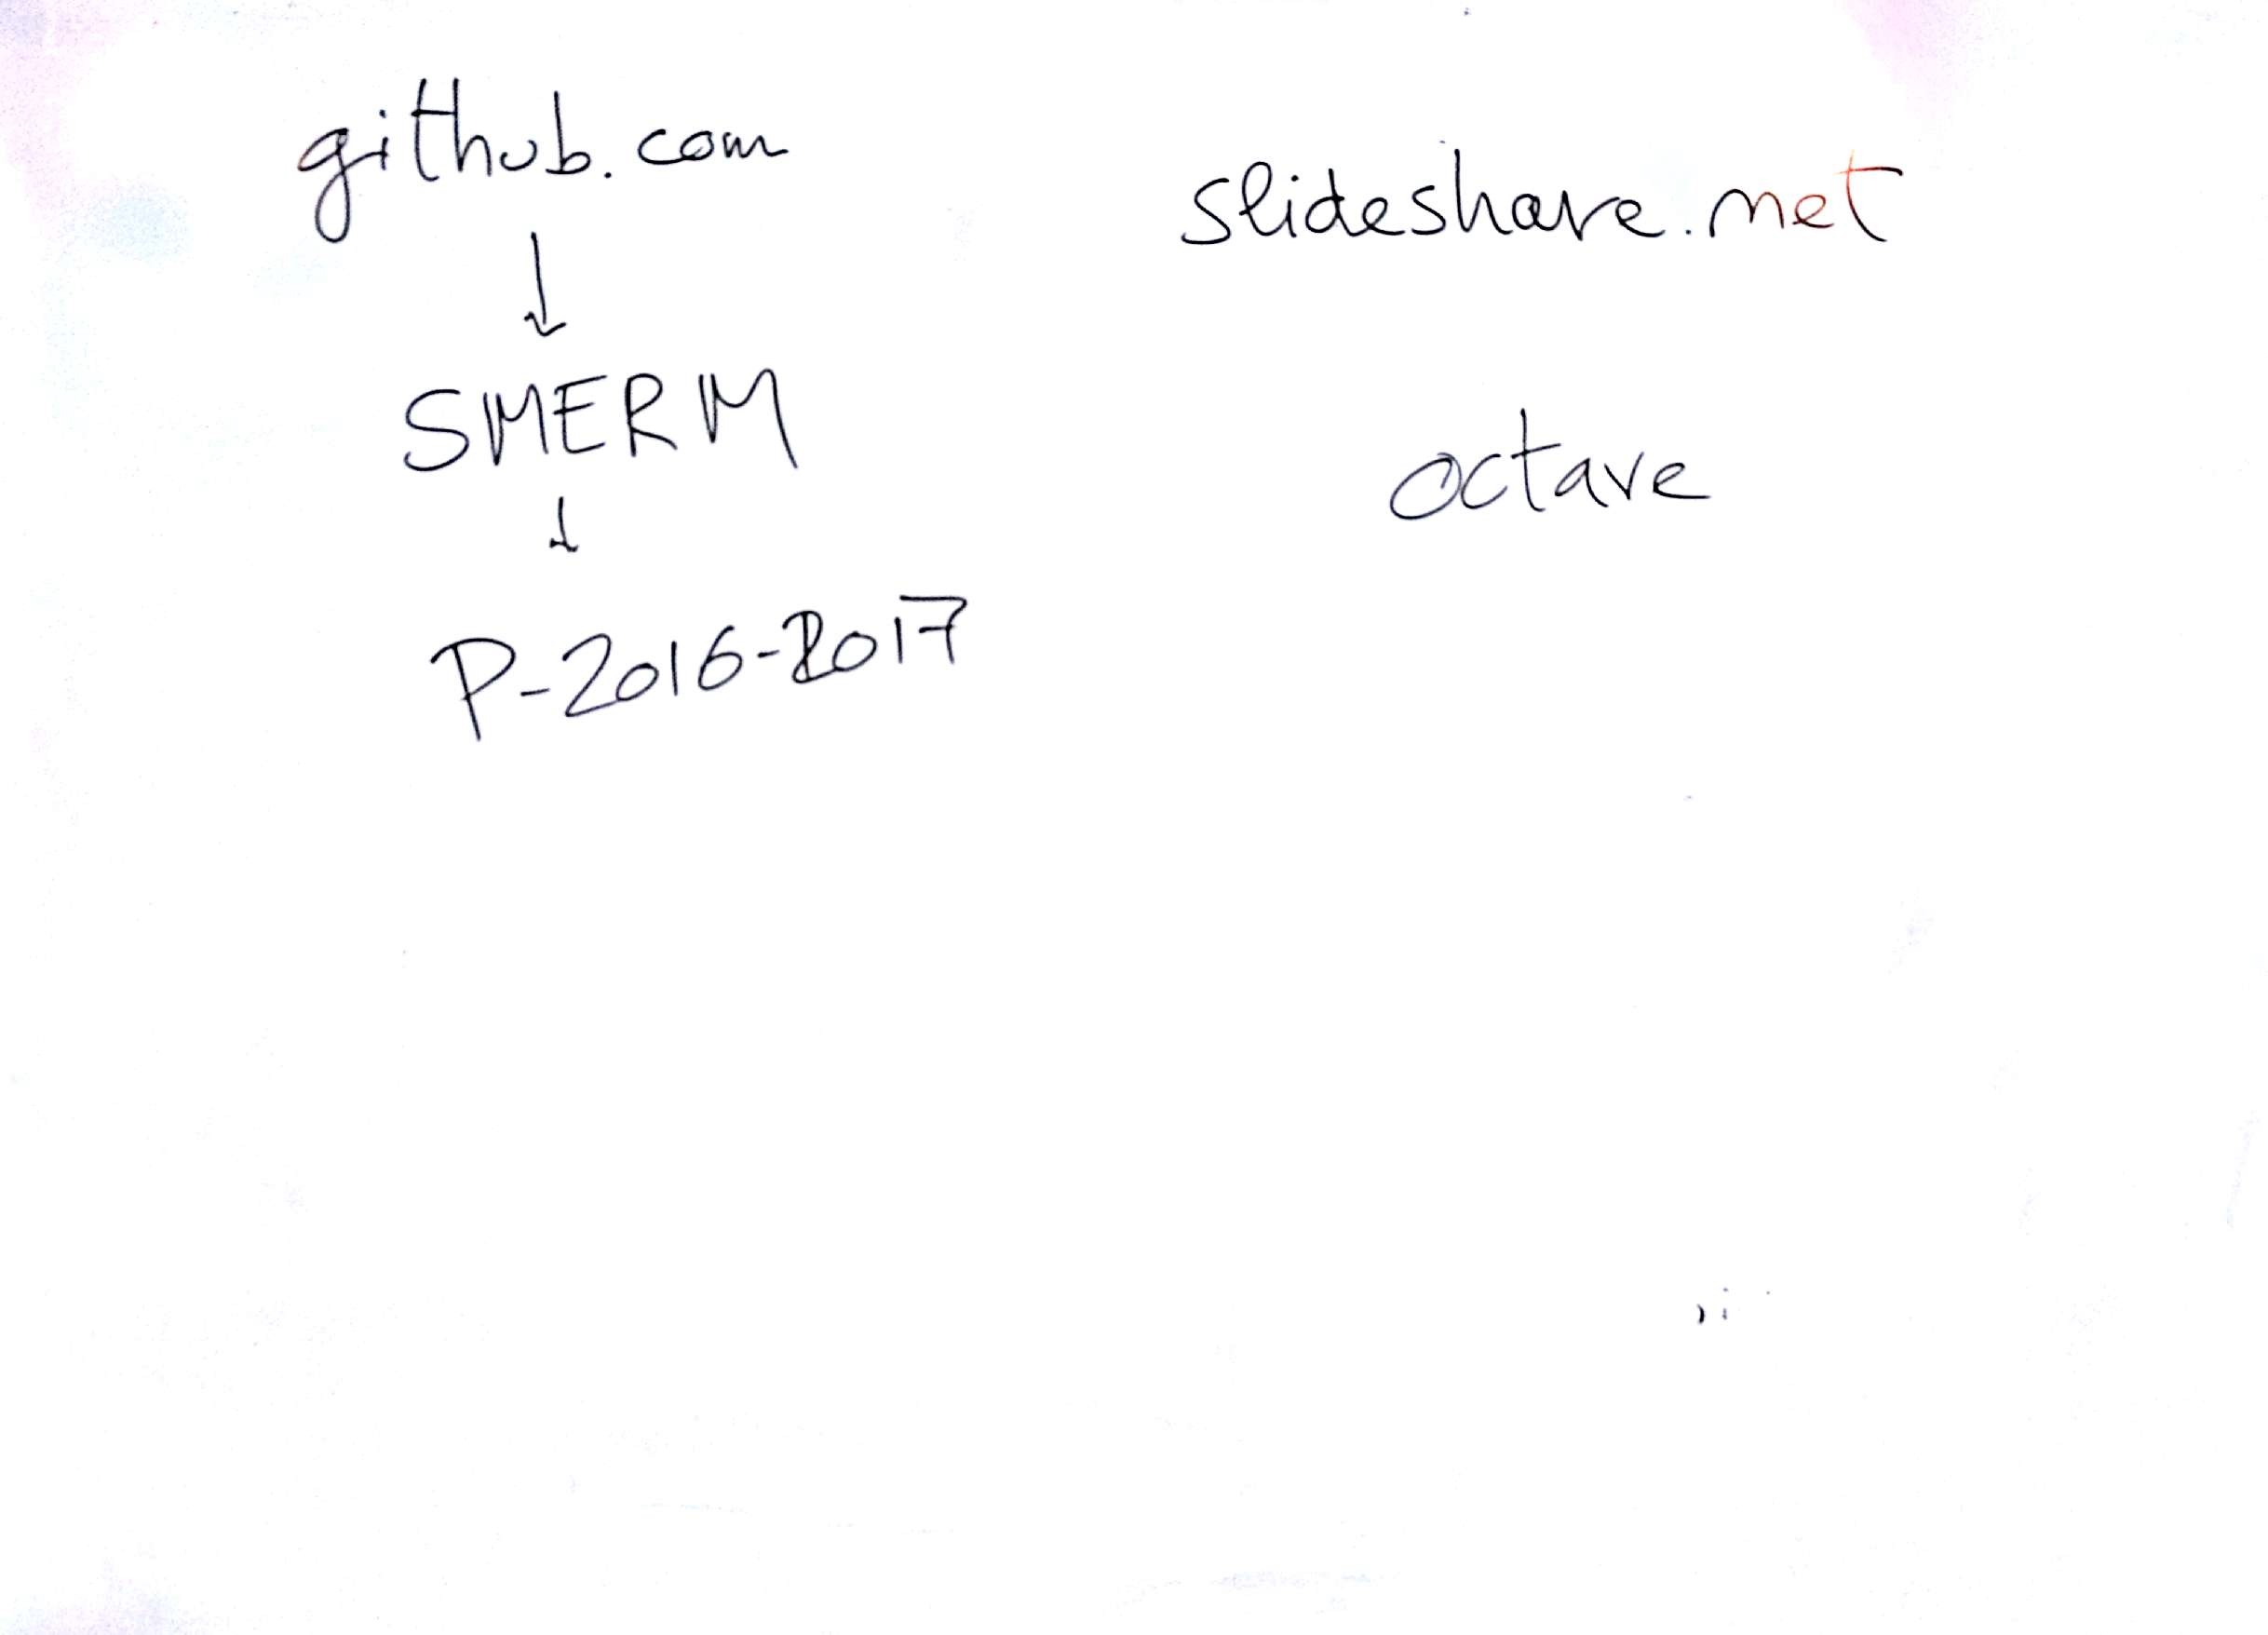 github.com
↓
SMERM
↓
P-2016-2017
slideshare.net
octave